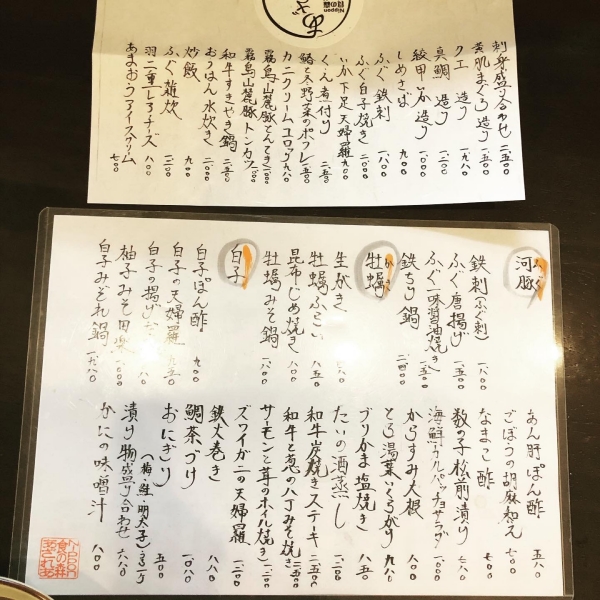 Nippon
食の森
あざ
刺身盛り合わせ 二、五〇〇
黄肌まぐろ造り 一、五〇〇
クエ 造り 一、八〇〇
真鯛 造り 一、二〇〇
紋甲いか 造り 一、二〇〇
しめさば 九〇〇
ふぐ 鉄刺 一、八〇〇
ふぐ白子焼き 二、〇〇〇
いか下足天婦羅 九〇〇
くえ煮付け 二、五〇〇
鮭と冬野菜のポフレ 一、二五〇
カニクリームコロッケ 九八〇
霧島山麓豚とんてき 一、八〇〇
霧島山麓豚トンカツ 一、八〇〇
和牛すきやき鍋 二、五〇〇
おうはん 水炊き 二、〇〇〇
炒飯 九八〇
ふぐ雑炊 一、二〇〇
羽二重しろチーズ 八〇〇
あまおうアイスクリーム 七〇〇
河豚 ふぐ
鉄刺(ふぐ刺) 一、八〇〇
ふぐ 唐揚げ 一、五〇〇
ふぐ一味醤油焼き 一、五〇〇
鉄ちり鍋 二、四〇〇
牡蠣 かき
生がき 六八〇
牡蠣ふらい 八五〇
昆布じめ焼き 八〇〇
牡蠣みそ鍋 一、八〇〇
白子
白子ぽん酢 九〇〇
白子の天婦羅 九五〇
白子の揚げだし
柚子みそ田楽 一、〇〇〇
白子みぞれ鍋 一、九八〇
あん肝ぽん酢 五八〇
ごぼうの胡麻和え 五〇〇
なまこ酢 七〇〇
数の子松前漬け 五〇〇
海鮮カルパッチョサラダ 一、八〇〇
からすみ大根 八〇〇
とろ湯葉いくらがけ 九八〇
ブリかま塩焼き 八五〇
たいの酒蒸し 一、二〇〇
和牛炭焼きステーキ 二、五〇〇
和牛と葱の八丁みそ焼き 二、五〇〇
サーモンと茸のホイル焼き 一、二〇〇
ズワイガニの天婦羅 一、二〇〇
鉄火巻き 八八〇
鯛茶づけ 一、〇八〇
おにぎり 五〇〇
(梅・鮭・明太子)
漬け物盛り合わせ 六八〇
かにの味噌汁 八〇〇